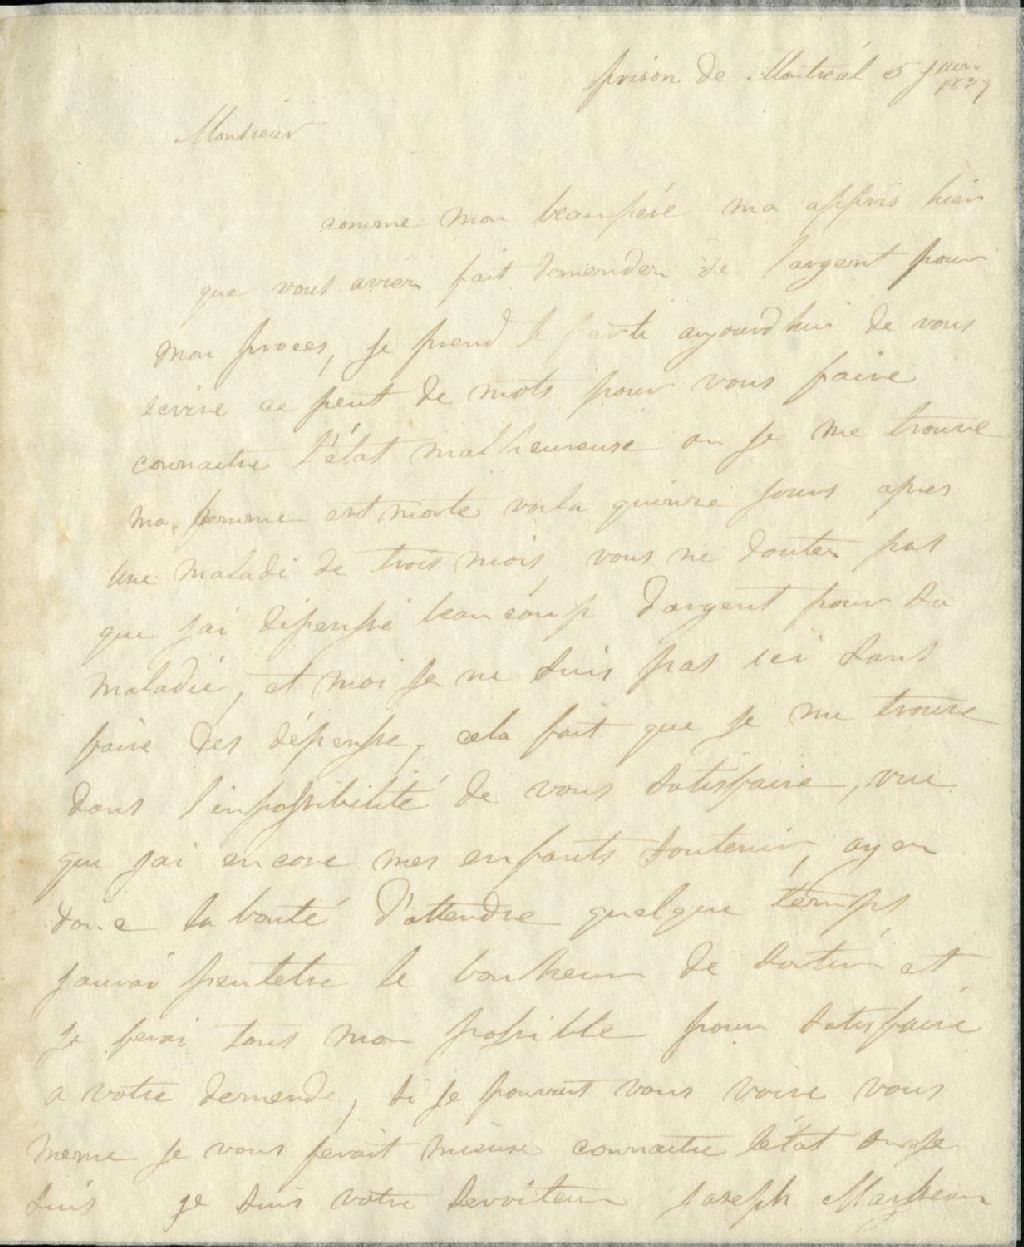 prison de Montreal 5 janv. 1839
Monsieur
comme mon beaupéré ma appris hier
que vous aviez fait demender de l'argent pour
mon proces, je prend le parti aujourd'hui de vous
ecrire ce peut de mots pour vous faire
connaitre l'état malheureuse ou je me trouve
ma femme est morte voila quinze jours apres
une maladi de trois mois, vous ne douter pas
que jai dépensé beaucoup d'argent pour sa
maladie, et moi je ne suis pas ici sans
faire des dépense, cela fait que je me trouve
dans l'impossibilité de vous satisfaire, vue
que jai encore mes enfants soutenir, ayer
donc la bonté d'attendre quelque temps
jaurai peutetre le bonheur de sortir et
je ferai tous mon possible pour satisfaire
a votre demende, si je pouvait vous voire vous
meme je vous ferait mieuse connaitre l'état ou je
suis je suis votre serviteur Joseph Marceau